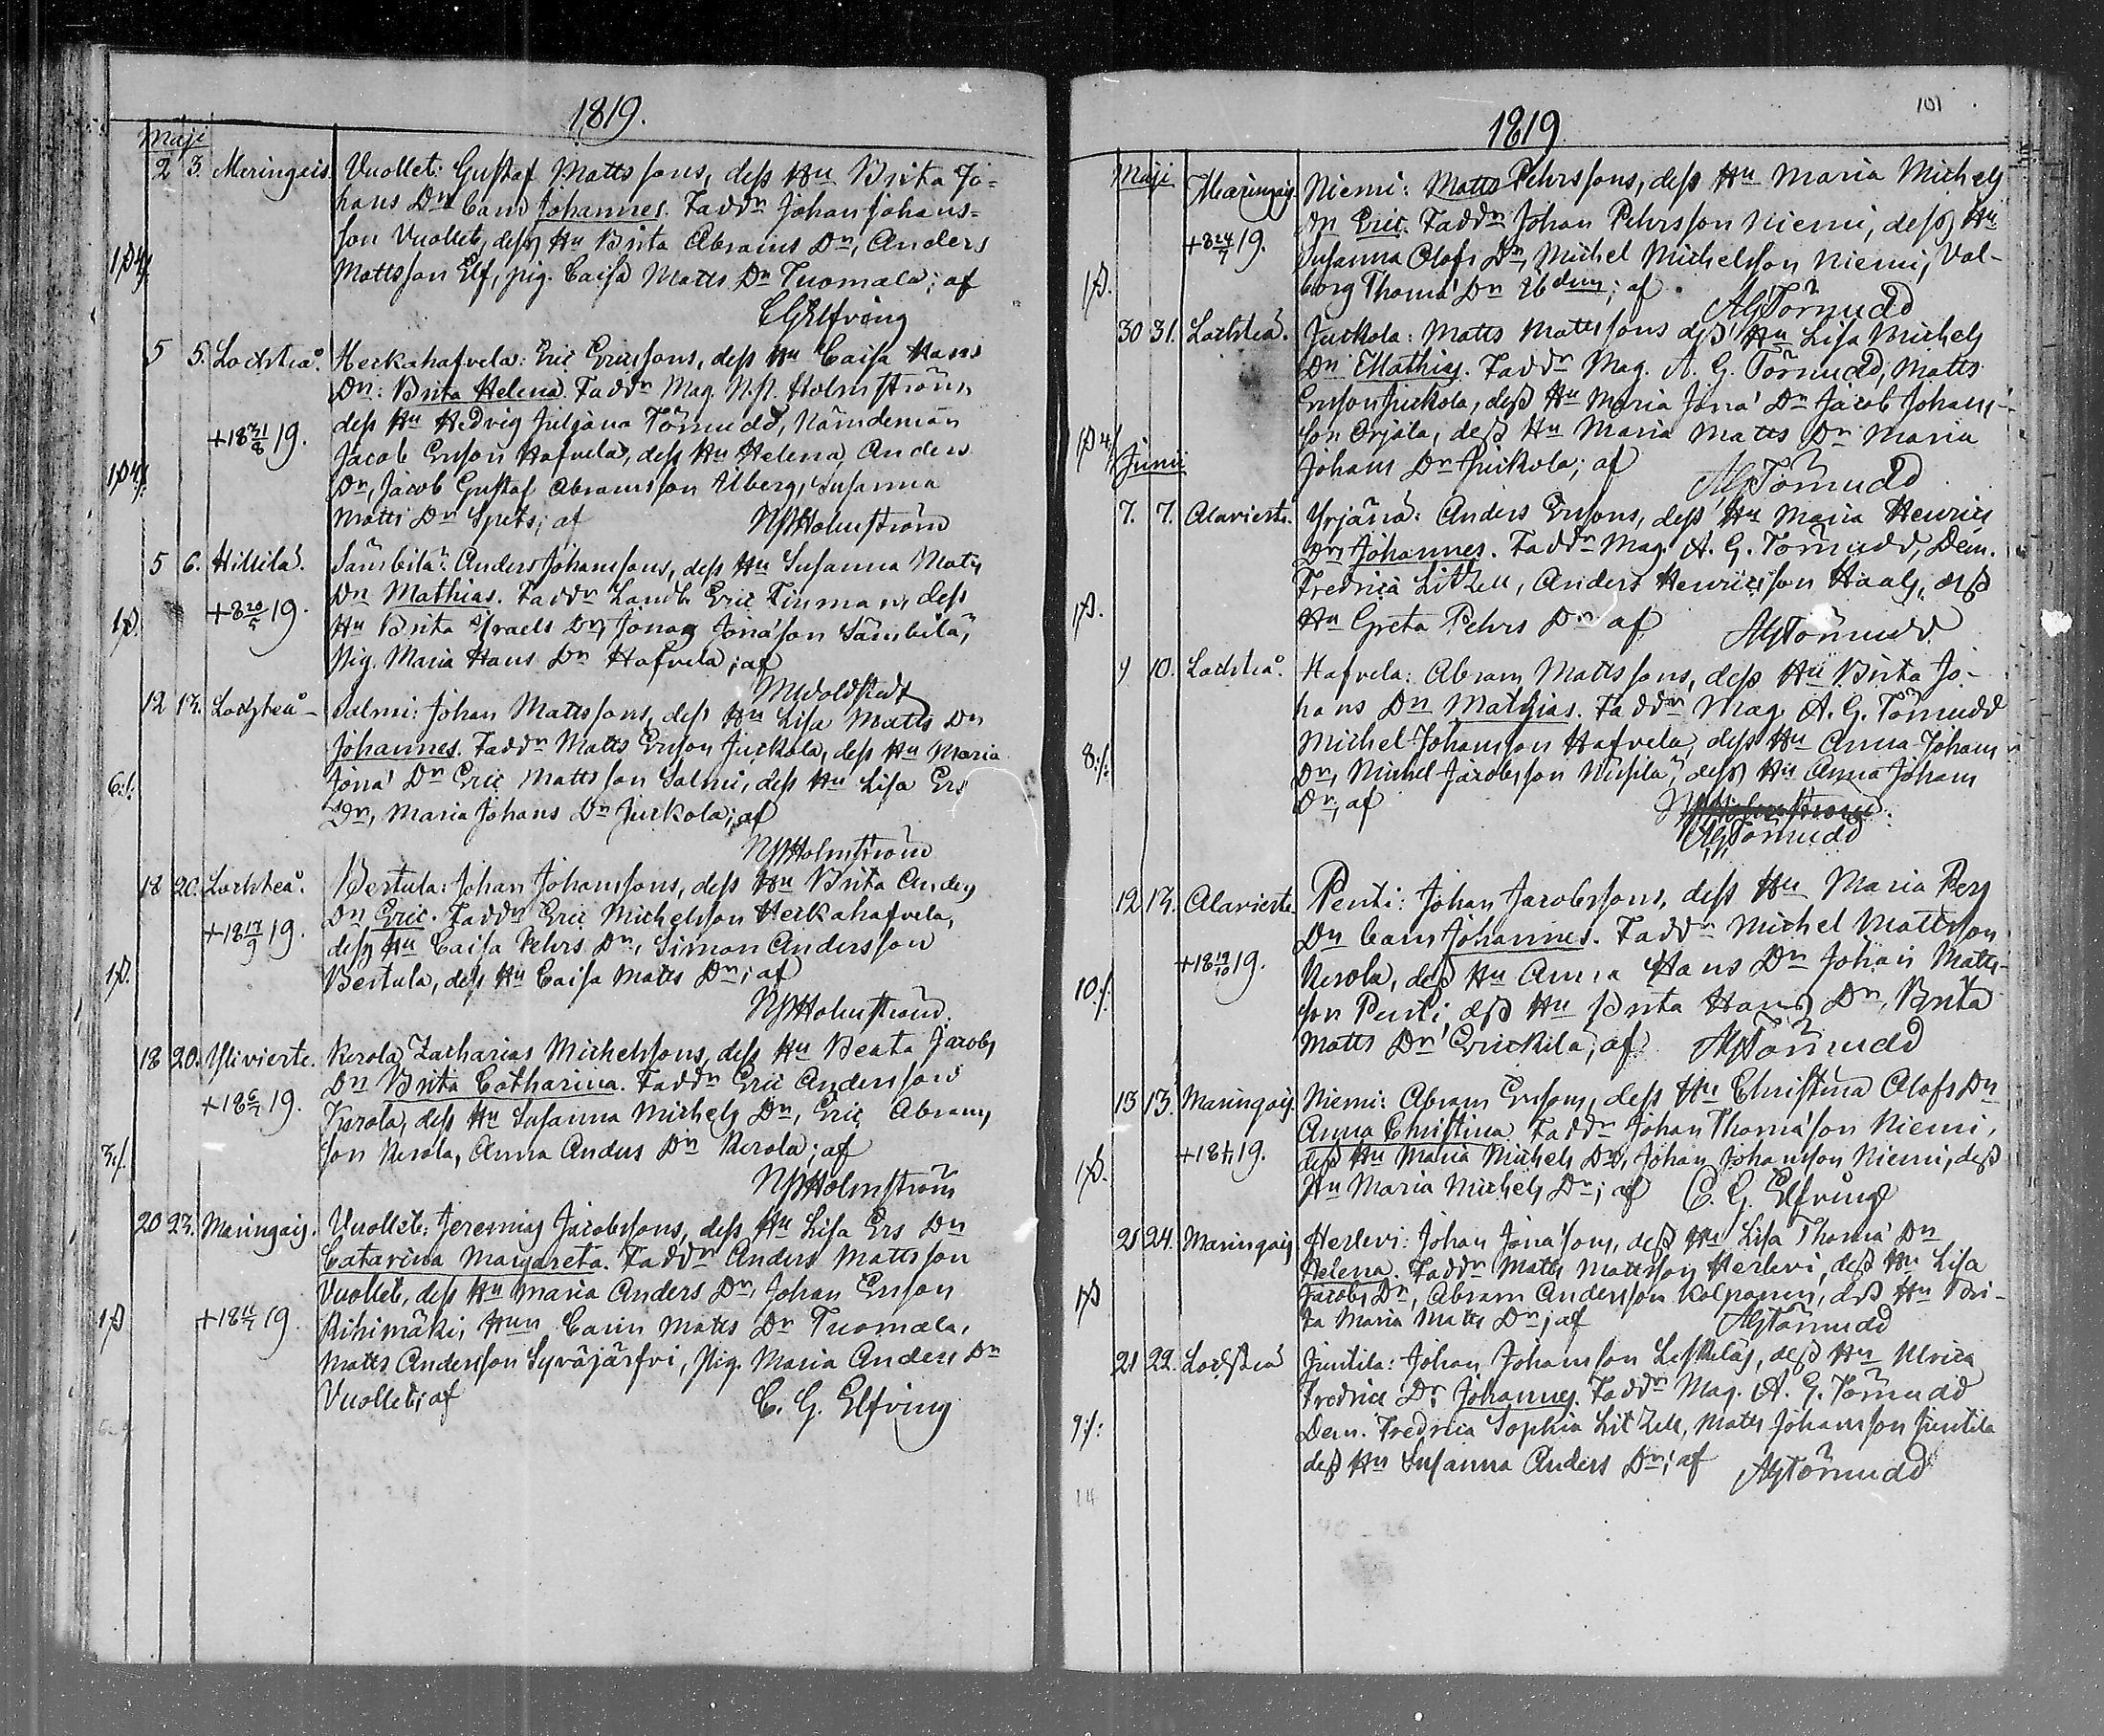 1819.
Maji
2 3. Maringais. Vuollet: Gustaf Mattssons, dess Hu Brita Jo=
hans Dr barn Johannes. Faddr Johan Johans=
son Vuollet, dess Hu Brita Abrams Dr, Anders
Mattsson Elf, pig. Caisa Matts Dr Tuomala; af
CGElfving
5 5. Lochteå. Heckahafvela: Eric Ericssons, dess Hu Caisa Hans
Dr: Brita Helena. Faddr Mag. N. P. Holmström
dess Hu Hedvig Juliana Törnudd, Nämndeman
+18 31/8 19. Jacob Erson Hafvela, dess Hu Helena Anders
Dr, Jacob Gustaf Abramsson Ålberg, Susanna
Matts Dr Spets; af NPHolmström
5 6. Hillilä. Sämbilä: Anders Johanssons, dess Hu Susanna Matts
+8 20/5 19. Dr Mathias. Faddr Landb. Eric Finman, dess
1ß. Hu Brita Israels Dr, Jonas Jonason Sämbilä,
Pig. Maria Hans Dr Hafvela; af
MWoldstedt
12 13. Lochteå Salmi: Johan Mattssons, dess Hu Lisa Matts Dr
Johannes. Faddr Matts Erson Juckola, dess Hu Maria
6:/: Jona Dr Eric Mattsson Salmi, dess Hu Lisa Ers
Dr, Maria Johans Dr Juckola; af
NPHolmström
18 20. Lochteå. Bertula: Johan Johanssons, dess Hu Brita Anders
Dr Eric. Faddr Eric Michelsson Heckahafvela,
+18 17/9 19. dess Hu Caisa Pehrs Dr, Simon Andersson
1ß. Bertula, dess Hu Caisa Matts Dr; af
NPHolmström.
18 20. Ylivierte. Kerola Zacharias Michelssons, dess Hu Beata Jacobs
Dr Brita Catharina. Faddr Eric Andersson
+18 6/7 19. Kerola, dess Hu Susanna Michels Dr, Eric Abrams
3:/. son Kerola, Anna Anders Dr Kerola; af
NPHolmström
20 23. Maringais. Vuollet: Jeremias Jacobssons, dess Hu Lisa Ers Dr
Catarina Margareta. Faddr Anders Mattsson
Vuollet, dess Hu Maria Anders Dr, Johan Erson
1ß Rihimäki, Hun Carin Matts Dr Tuomala,
Matts Andersson Syväjärfvi, Pig. Maria Anders Dr
Vuollet; af C. G. Elfving
101
1819
Maji
Maringais. Niemi: Matts Pehrssons, dess Hu Maria Michels
Dr Eric. Faddr Johan Pehrsson Niemi, dess Hu
+8 24/7 19. Susanna Olofs Dr, Michel Michelsson Niemi, Val-
1ß. borg Thoma Dr Ibdem; af AGTörnudd
30 31. Lochteå. Juckola: Matts Mattssons dess Hu Lisa Michels
Dr Mathias. Faddr Mag. A. G. Törnudd, Matts
Erson Juckola, dess Hu Maria Jona Dr Jacob Johans-
son Orjala, dess Hu Maria Matts Dr Maria
Johans Dr Juckola; af AGTörnudd
Junii
7. 7. Alavierte. Yrjänä: Anders Ersons, dess Hu Maria Henrics
Dr, Johannes. Faddr Mag. A. G. Törnudd, Dem.
Fredrica Litzell, Anders Henricsson Haals, dess
1ß. Hu Greta Pehrs Dr af AGTörnudd
9 10. Lochteå. Hafvela: Abram Mattssons, dess Hu Brita Jo-
hans Dr Mathias. Faddr Mag A. G. Törnudd
Michel Johansson Hafvela, dess Hu Anna Johans
8:/: Dr, Michel Jacobsson Niisilä, dess Hu Anna Johans
Dr; af
AGTörnudd
12 13. Alavierte. Penti: Johan Jacobssons, dess Hu Maria Pers
Dr barn Johannes. Faddr Michel Mattsson
+18 19/10 19. Kerola, dess Hu Anna Hans Dr Johan Matts-
10:/: son Penti, dess Hu Brita Hans Dr, Brita
Matts Dr Erickilä; af AGTörnudd
13 13. Maringais Niemi: Abram Ersons, dess Hu Christina Olofs Dr
Anna Christina. Faddr Johan Thomason Niemi,
dess Hu Maria Michels Dr, Johan Johansson Niemi, dess
1ß. Hu Maria Michels Dr; af C. G. Elfving
21 24. Maringais Herlevi: Johan Jonasons, dess Hu Lisa Thoma Dr
Helena. Faddr Matts Mattsson Herlevi, dess Hu Lisa
1ß Jacobs Dr, Abram Andersson Kolpanen, dess Hu Bri-
ta Maria Matts Dr; af AGTörnudd
21 22. Lochteå Juntila: Johan Johansson Leskeläs, dess Hu Ulrica
Fredric Dr Johannes. Faddr Mag. A. G. Törnudd
9:/: Dem. Fredrica Sophia Litzell, Matts Johansson Juntila
dess Hu Susanna Anders Dr; af AGTörnudd